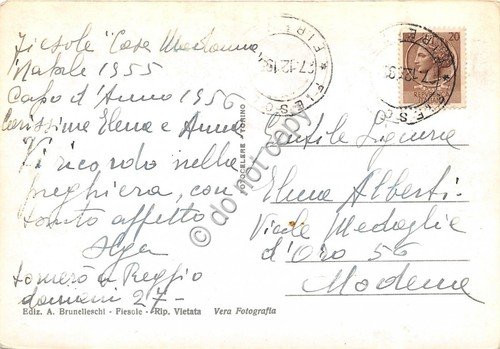 Fiesole "Casa Madonna"
Natale 1955
Capo d'Anno 1956
Carissime Elena e Anna
Vi ricordo nella
preghiera, con
tanto affetto
Olga
tornerò a Reggio
domani 27-
Ediz. A. Brunelleschi - Fiesole - Rip. Vietata Vera Fotografia
FOTOCELERE - TORINO
FIESOLE
27.12.19
20
Gentile Signora
Elena Alberti
Viale Medaglie
d'Oro 56
Modena
do not copy